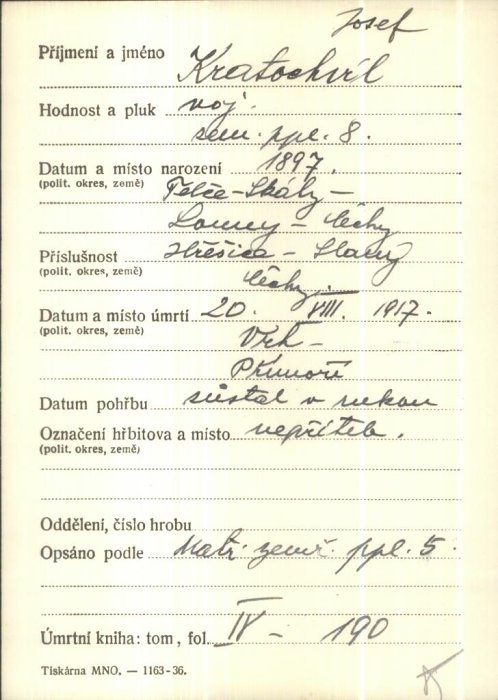 Josef
Příjmení a jméno Kratochvíl
Hodnost a pluk voj.
zem. ppl. 8.
Datum a místo narození 1897.
(polit. okres, země)
Louny – Čechy
Příslušnost Hřešice – Slaný
(polit. okres, země) Čechy.
Datum a místo úmrtí 20. VIII. 1917.
(polit. okres, země) Vrh –
Přímoří
Datum pohřbu zůstal v rukou
Označení hřbitova a místo nepřítele.
(polit. okres, země)
Oddělení, číslo hrobu
Opsáno podle Matr. zemř. ppl. 5.
Úmrtní kniha: tom, fol. IV – 190
Tiskárna MNO. — 1163-36.